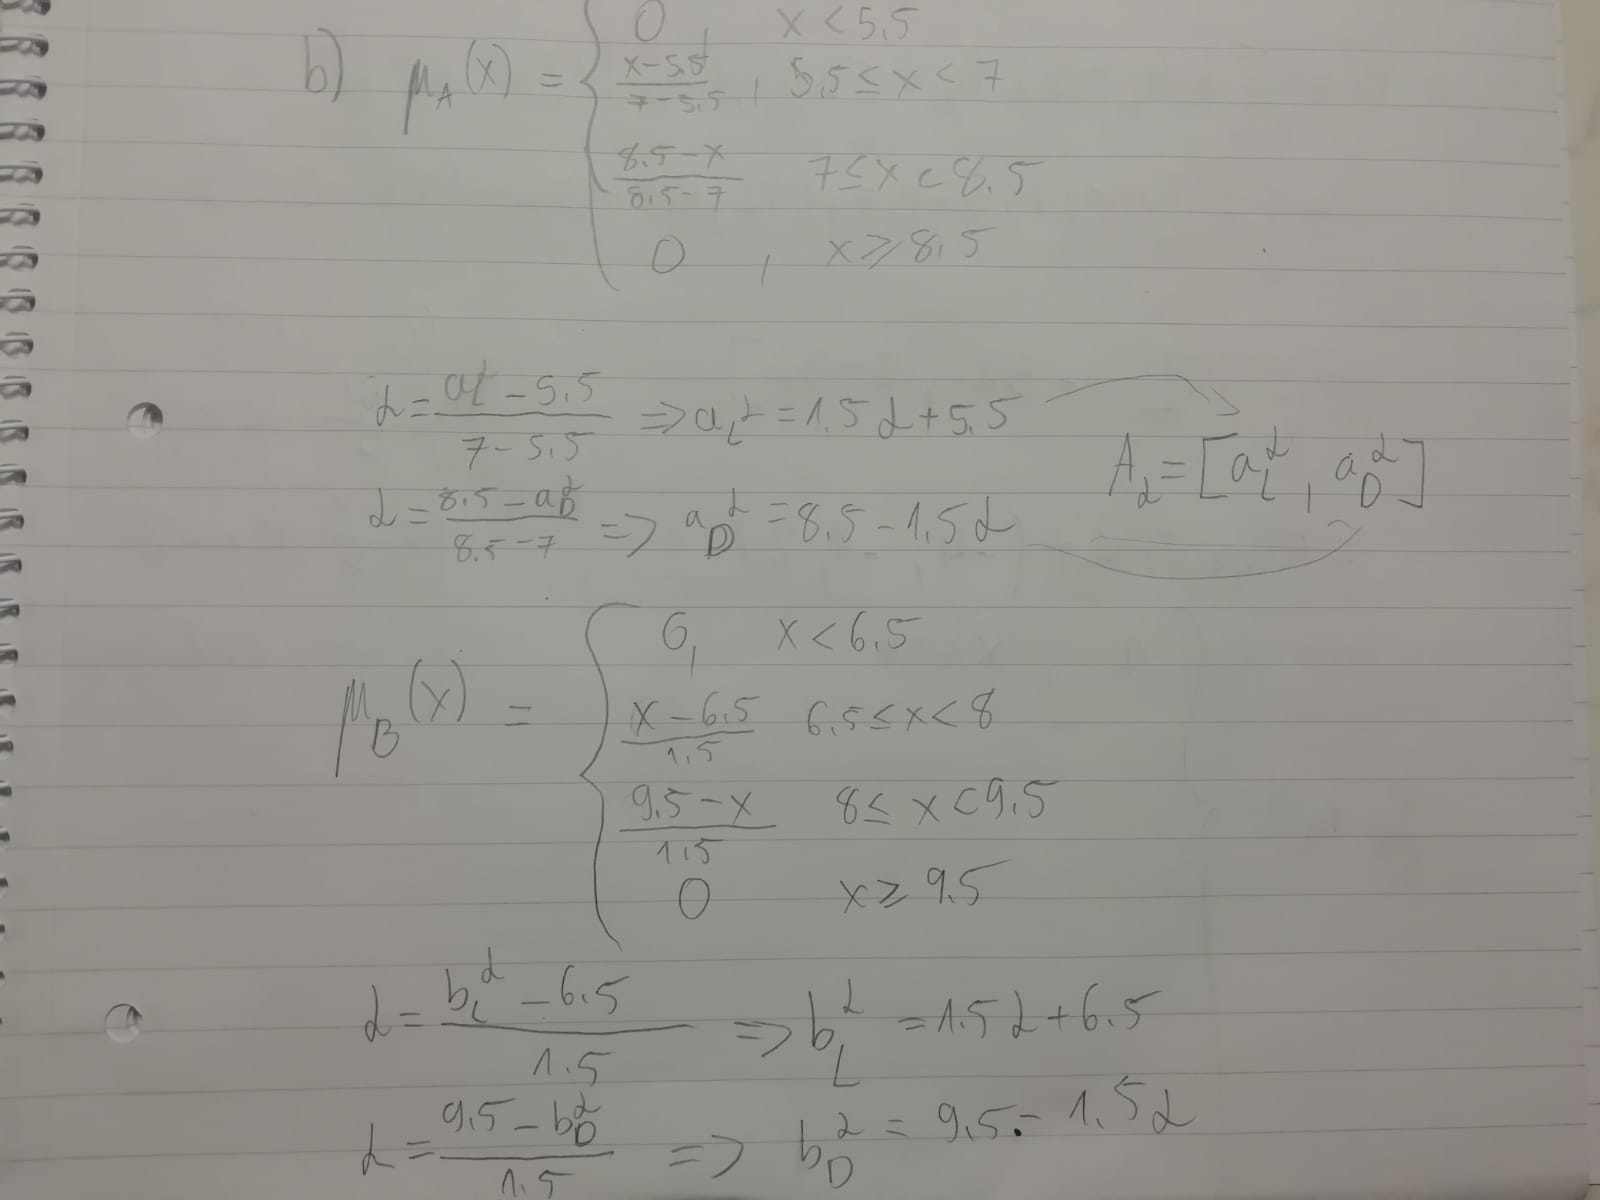 b) μ_A(x) = { 0, x < 5.5
(x-5.5)/(7-5.5), 5.5 ≤ x < 7
(8.5-x)/(8.5-7) 7 ≤ x < 8.5
0, x ≥ 8.5
α = (a_L^α - 5.5)/(7-5.5) ⇒ a_L^α = 1.5α + 5.5
A_α = [a_L^α, a_D^α]
α = (8.5 - a_D^α)/(8.5-7) ⇒ a_D^α = 8.5 - 1.5α
μ_B(x) = { 0, x < 6.5
(x-6.5)/1.5 6.5 ≤ x < 8
(9.5-x)/1.5 8 ≤ x < 9.5
0 x ≥ 9.5
α = (b_L^α - 6.5)/1.5 ⇒ b_L^α = 1.5α + 6.5
α = (9.5 - b_D^α)/1.5 ⇒ b_D^α = 9.5 - 1.5α